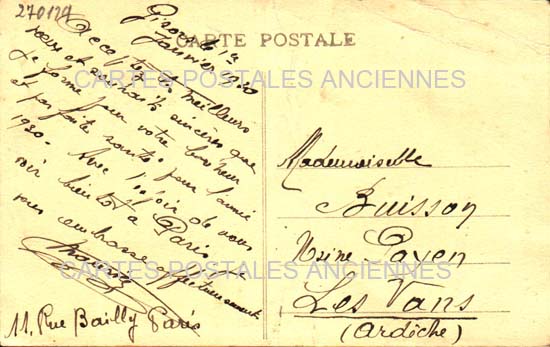 270129
CARTE POSTALE
CARTES POSTALES ANCIENNES
le 1er
Janvier 1930
Acceptez meilleurs
vœux et souhaits sincères que
je forme pour votre bonheur
et parfaite santé pour l'année
1930. Avec l'espoir de vous
voir bientôt à Paris je
vous embrasse affectueusement
11, Rue Bailly Paris
Mademoiselle
Buisson
Usine Payen
Les Vans
(Ardèche)
CARTES POSTALES ANCIENNES